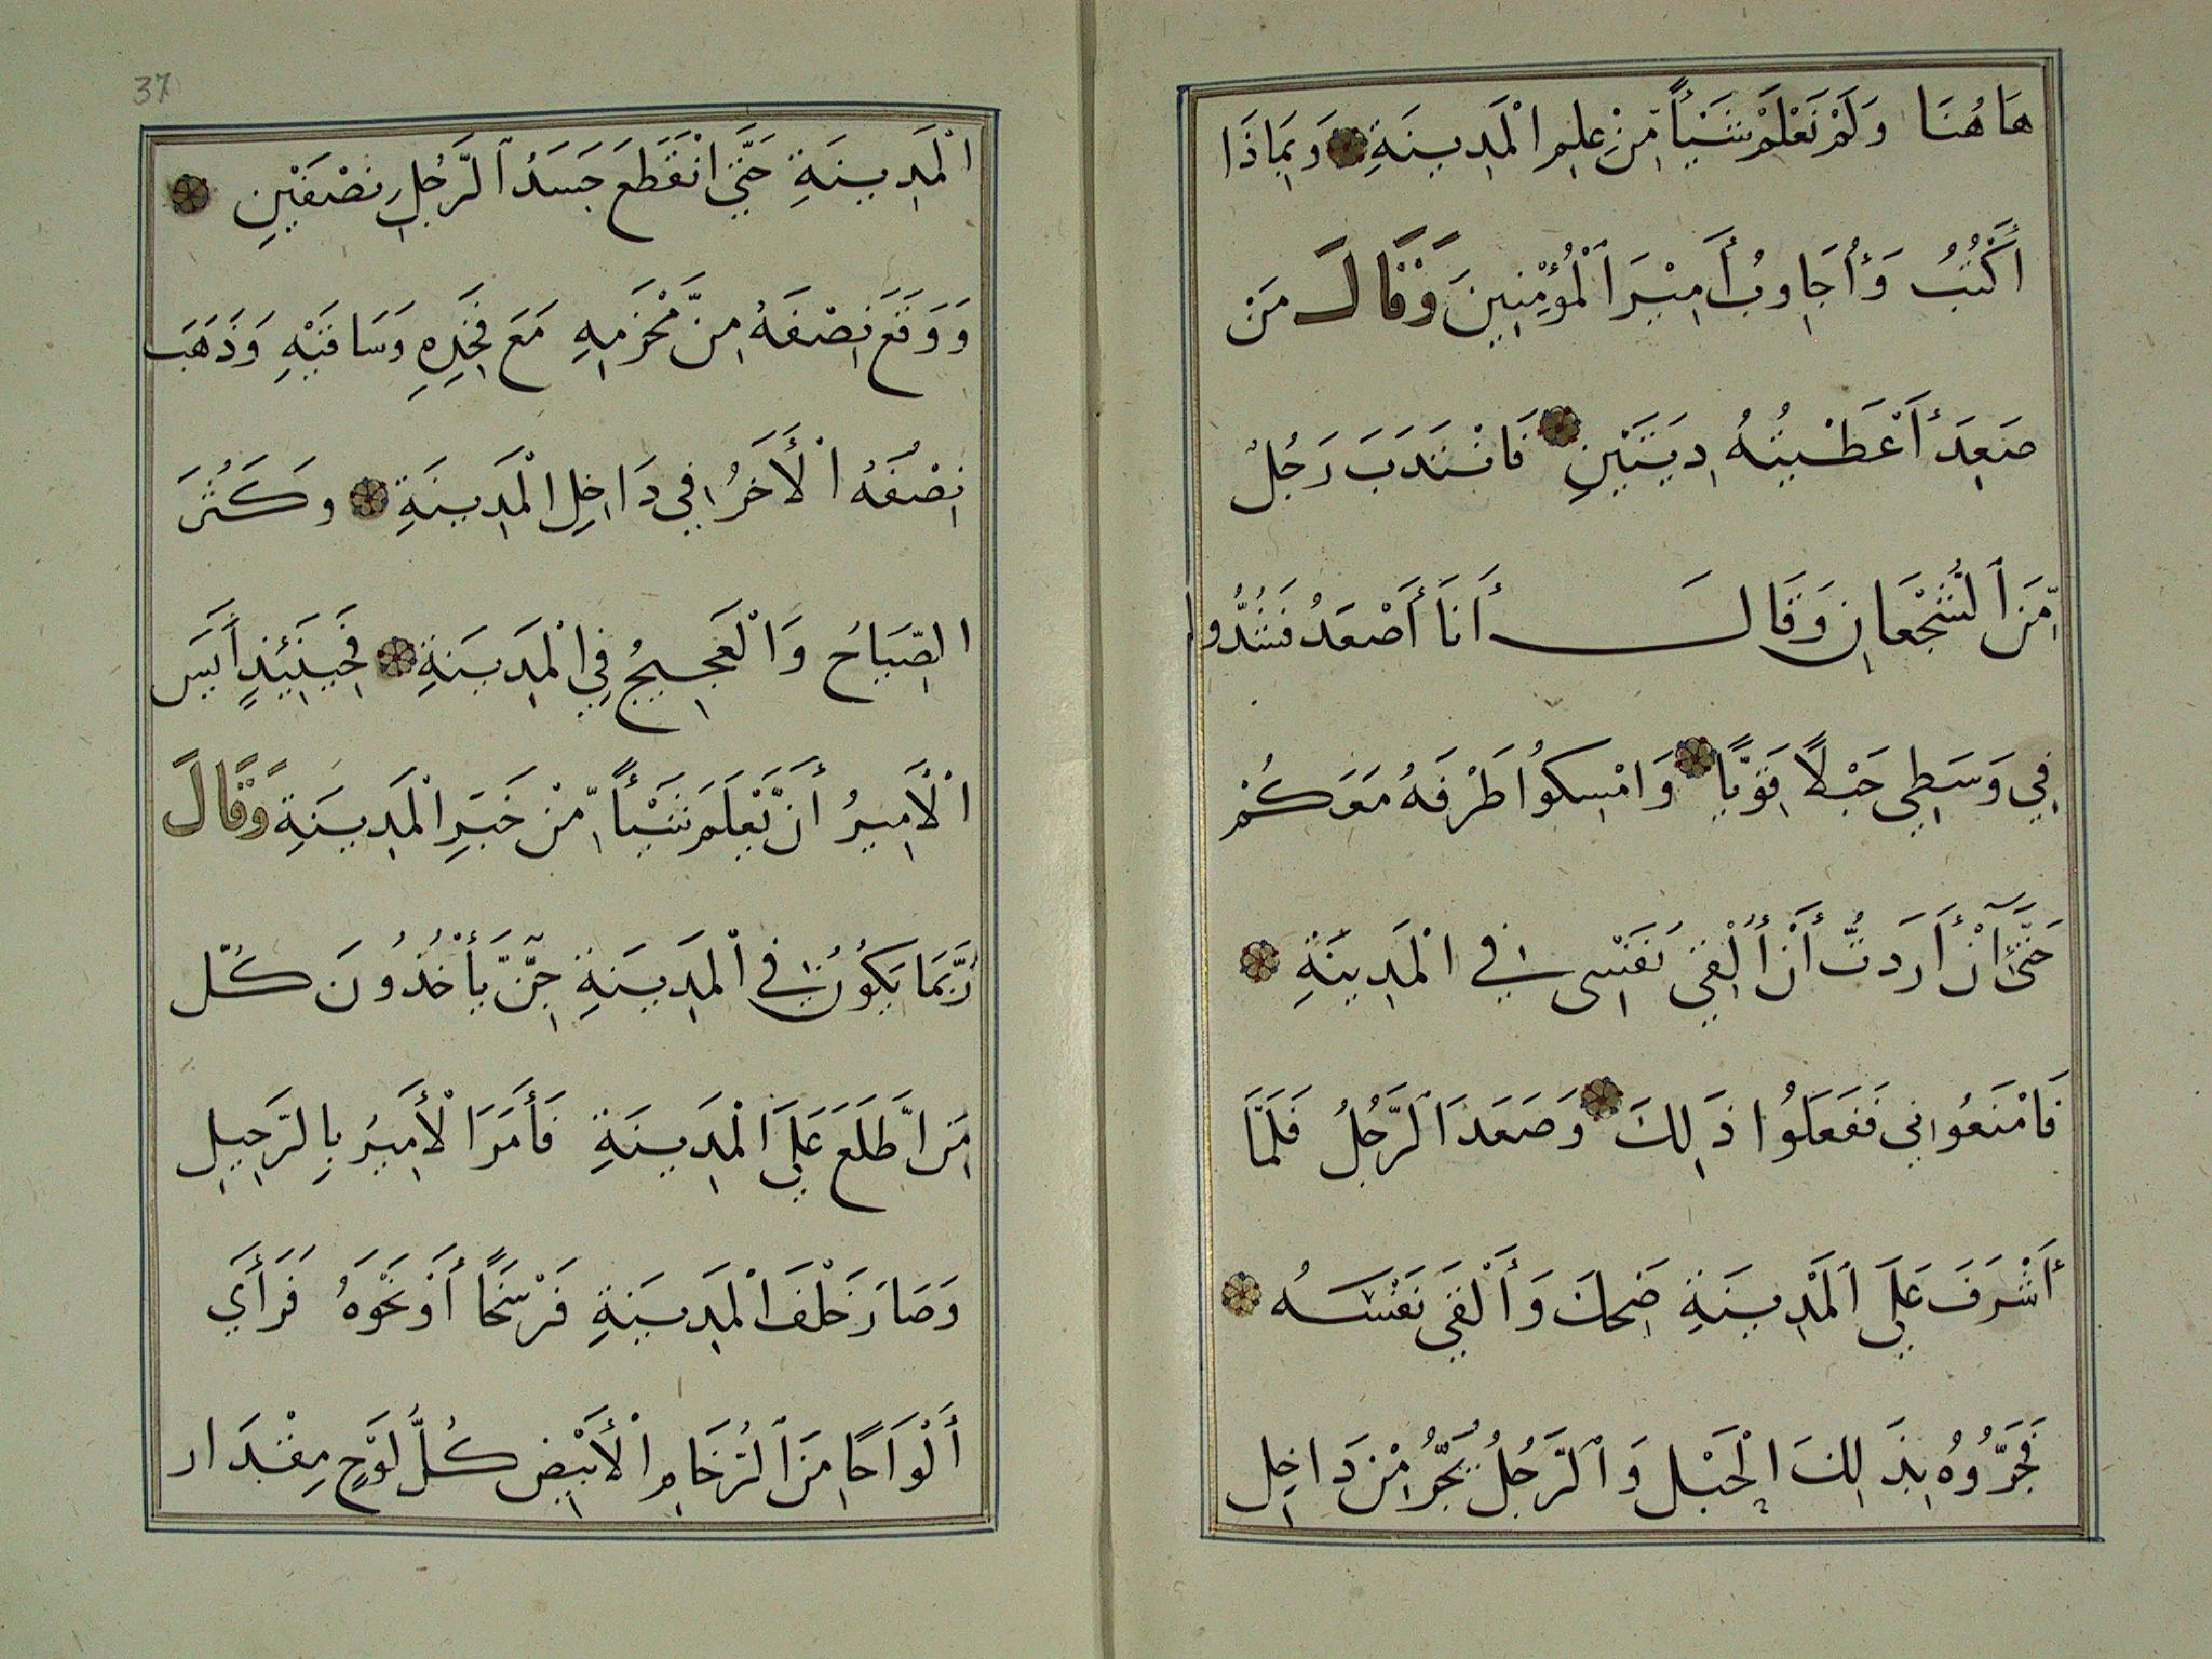 هَاهُنَا وَلَمْ نَعْلَمْ شَيْأً مِّنْ عِلْمِ الْمَدِينَةِ وَبِمَاذَا
أَكْتُبُ وَأُجَاوِبُ أَمِيْرَ الْمُؤْمِنِينَ وَقَالَ مَنْ
صَعِدَ أَعْطَيْتُهُ دِيَتَيْنِ فَانْتَدَبَ رَجُلٌ
مِّنَ الشُّجْعَانِ وَقَالَ أَنَا أَصْعَدُ فَشُدُّوا
فِي وَسَطِي حَبْلًا قَوِيًّا وَامْسِكُوا طَرْفَهُ مَعَكُمْ
حَتَّى إِنْ أَرَدتُّ أَنْ أُلْقِيَ نَفْسِى فِي الْمَدِينَةِ
فَامْنَعُوانِي فَفَعَلُوا ذَلِكَ وَصَعَدَ الرَّجُلُ فَلَمَّا
أَشْرَفَ عَلَى الْمَدِينَةِ ضَحِكَ وَأَلْقَى نَفْسَهُ
فَجَرُّوهُ بِذَلِكَ الْحَبْلِ وَالرَّجُلُ يَجُرُّ مِنْ دَاخِلِ
37
الْمَدِينَةِ حَتَّى انْقَطَعَ جَسَدُ الرَّجُلِ نِصْفَيْنِ
وَوَقَعَ نِصْفَهُ مِنْ مَّحْزَمِهِ مَعَ فَخِذِهِ وَسَاقَيْهِ وَذَهَبَ
نِصْفُهُ الْأَخَرُ فِي دَاخِلِ الْمَدِينَةِ وكَثُرَ
الصِّيَاحُ وَالْعَجِيجُ فِي الْمَدِينَةِ فَحِينَئِذٍ أَيَسَ
الْأَمِيرُ أَنْ يَّعْلَمَ شَيْأً مِّنْ خَبَرِ الْمَدِينَةِ وَقَالَ
رُبَّمَا يَكُونُ فِي الْمَدِينَةِ جِنٌّ يَأْخُذُونَ كُلَّ
مَنِ اطَّلَعَ عَلَى الْمَدِينَةِ فَأَمَرَ الْأَمِيرُ بِالرَّحِيلِ
وَصَارَ خَلْفَ الْمَدِينَةِ فَرْسَخًا أَوْ نَحْوَهُ فَرَأَي
أَلْوَاحًا مِنَ الرُّخَامِ الْأَبْيَضِ كُلُّ لَوْحٍ مِقْدَار